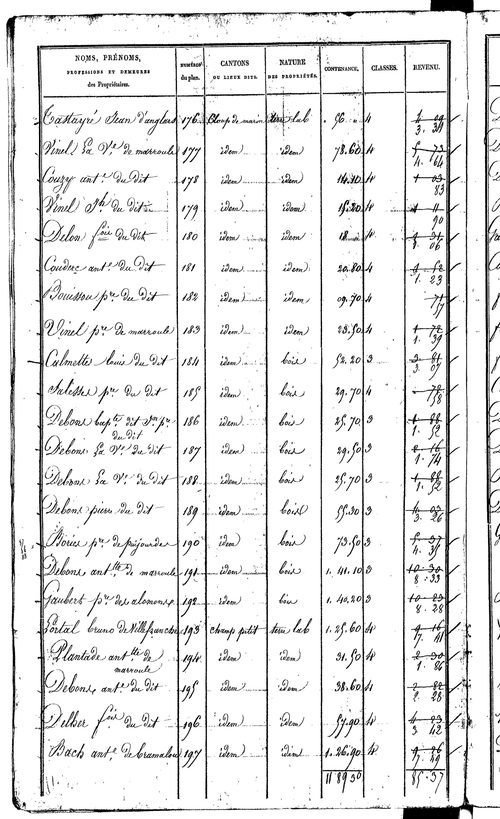 NOMS, PRÉNOMS, PROFESSIONS ET DEMEURES des Propriétaires. NUMÉROS du plan. CANTONS OU LIEUX DITS. NATURE DES PROPRIÉTÉS. CONTENANCE. CLASSES. REVENU.
Castayré Jean d'anglars 176 Champ de terre lab 56 4 3. 34
Vinel La Ve. de marroule 177 idem idem 78.60 4 5 73 4. 64
Couzy ant.e du dit 178 idem idem 14.10 4 1 03 83
Vinel Jh. du dit 179 idem idem 15.20 4 1 11 90
Delon fois du dit 180 idem idem 4 8 06
Couderc ant.e du dit 181 idem idem 20.80 4 1 52 1. 23
Bouisson pre. du dit 182 idem idem 09.70 4 71 57
Vinel pre. de marroule 183 idem idem 23.50 4 1 72 1. 39
Culmette louis du dit 184 idem bois 52.20 3 3 81 3. 07
Salesses pre. du dit 185 idem bois 29.70 4 78 58
Debons bapte. dit pre 186 idem bois 25.70 3 1 88 1. 52
du dit
Debons La Ve. du dit 187 idem bois 29.50 3 2 16 1. 74
Debons La Ve. du dit 188 idem bois 25.70 3 1 88 1. 52
Debons pierre du dit 189 idem bois 55.30 3 4 03 3. 26
Bories pre. de 190 idem bois 73.50 3 5 37 4. 35
Debons ant.e de marroule 191 idem bois 1. 41.10 3 10 30 8. 33
Gaubert pre. des alemans 192 idem bois 1. 40.20 3 10 23 8. 28
Portal bruno de Villefranche 193 champ petit terre lab 1. 25.60 4 9 16 7. 41
Plantade ant.e de 194 idem idem 31.50 4 2 30 1. 86
marroule
Debons ant.e du dit 195 idem idem 38.60 4 2 82 2. 28
Delher fois du dit 196 idem idem 57.90 4 4 23 3 42
Bach ant.e de Crumalou 197 idem idem 1. 26.90 4 9 26 7. 49
11 89 30 85. 37